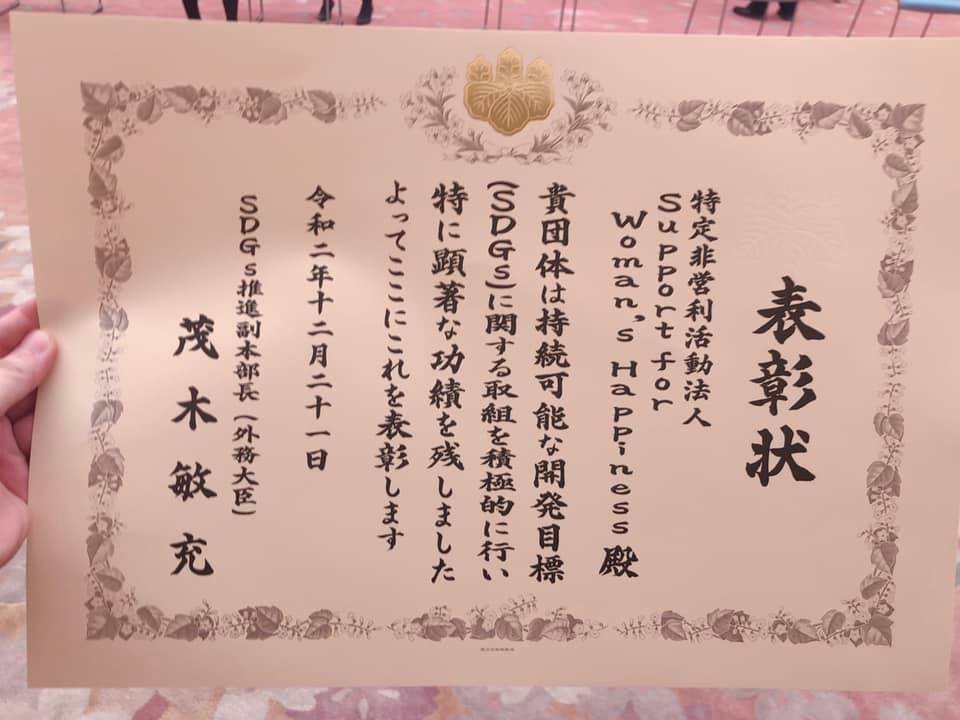 表彰状
特定非営利活動法人
Support for
Woman's Happiness 殿
貴団体は持続可能な開発目標
(SDGs)に関する取組を積極的に行い
特に顕著な功績を残しました
よってここにこれを表彰します
令和二年十二月二十一日
SDGs推進副本部長(外務大臣)
茂木敏充